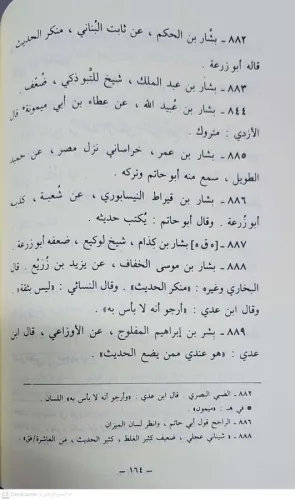 ٨٨٢ ـ بشار بن الحكم ، عن ثابت البُناني ، منكر الحديث
قاله أبو زرعة .
٨٨٣ ـ بشار بن عبد الملك ، شيخ للتَّبوذكي ، ضُعِّف .
٨٤٤ ـ بشار بن عُبيد الله ، عن عطاء بن أبي ميمونة* قال
الأزدي : متروك .
٨٨٥ ـ بشار بن عمر ، خراساني نزل مصر ، عن حميد
الطويل ، سمع منه أبو حاتم وتركه .
٨٨٦ ـ بشار بن قيراط النيسابوري ، عن شُعبة ، كذبه
أبو زُرعة . وقال أبو حاتم : يُكتب حديثه .
٨٨٧ ـ بشار بن كِدَام ، شيخ لوكيع ، ضعفه أبو زرعة .
٨٨٨ ـ بشار بن موسى الخفاف ، عن يزيد بن زُرَيْع . قال
البخاري وغيره : «منكر الحديث» . وقال النسائي : «ليس بثقة» .
وقال ابن عدي : «أرجو أنه لا بأس به» .
٨٨٩ ـ بشر بن إبراهيم المفلوج ، عن الأوزاعي ، قال ابن
عدي : «هو عندي ممن يضع الحديث» .
٨٨٢ ـ الضبي البصري . قال ابن عدي : «وأرجو أنه لا بأس به» اللسان .
* في هـ : «ميمون» .
٨٨٦ ـ الراجح قول أبي حاتم ، وانظر لسان الميزان .
٨٨٨ ـ شيباني عجلي ، ضعيف كثير الغلط ، كثير الحديث ، من العاشرة/فق» .
ـ ١٦٤ ـ